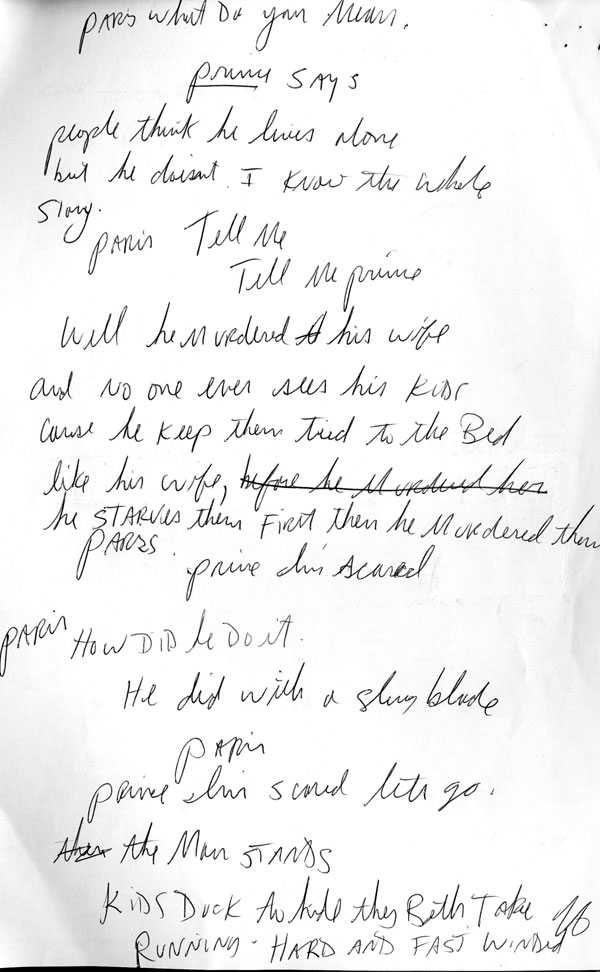 PARIS what Do you Mean.
prince SAYS
people think he lives alone
but he doisent I know the whole
story.
PARIS Tell Me
Tell Me prince
Well he Murdered his wife
and no one ever sees his KiDS
cause he keep them tied to the Bed
like his wife, before he Murdered her
he STARVES them First then he Murdered them
PARIS
prince I'm scared
PARIS HOW DID he Do it.
He did with a blade
PARIS
prince I'm scared lets go.
then the Man STANDS
KiDS Duck to hide they Both Take off
RUNNING. HARD AND FAST WINDED